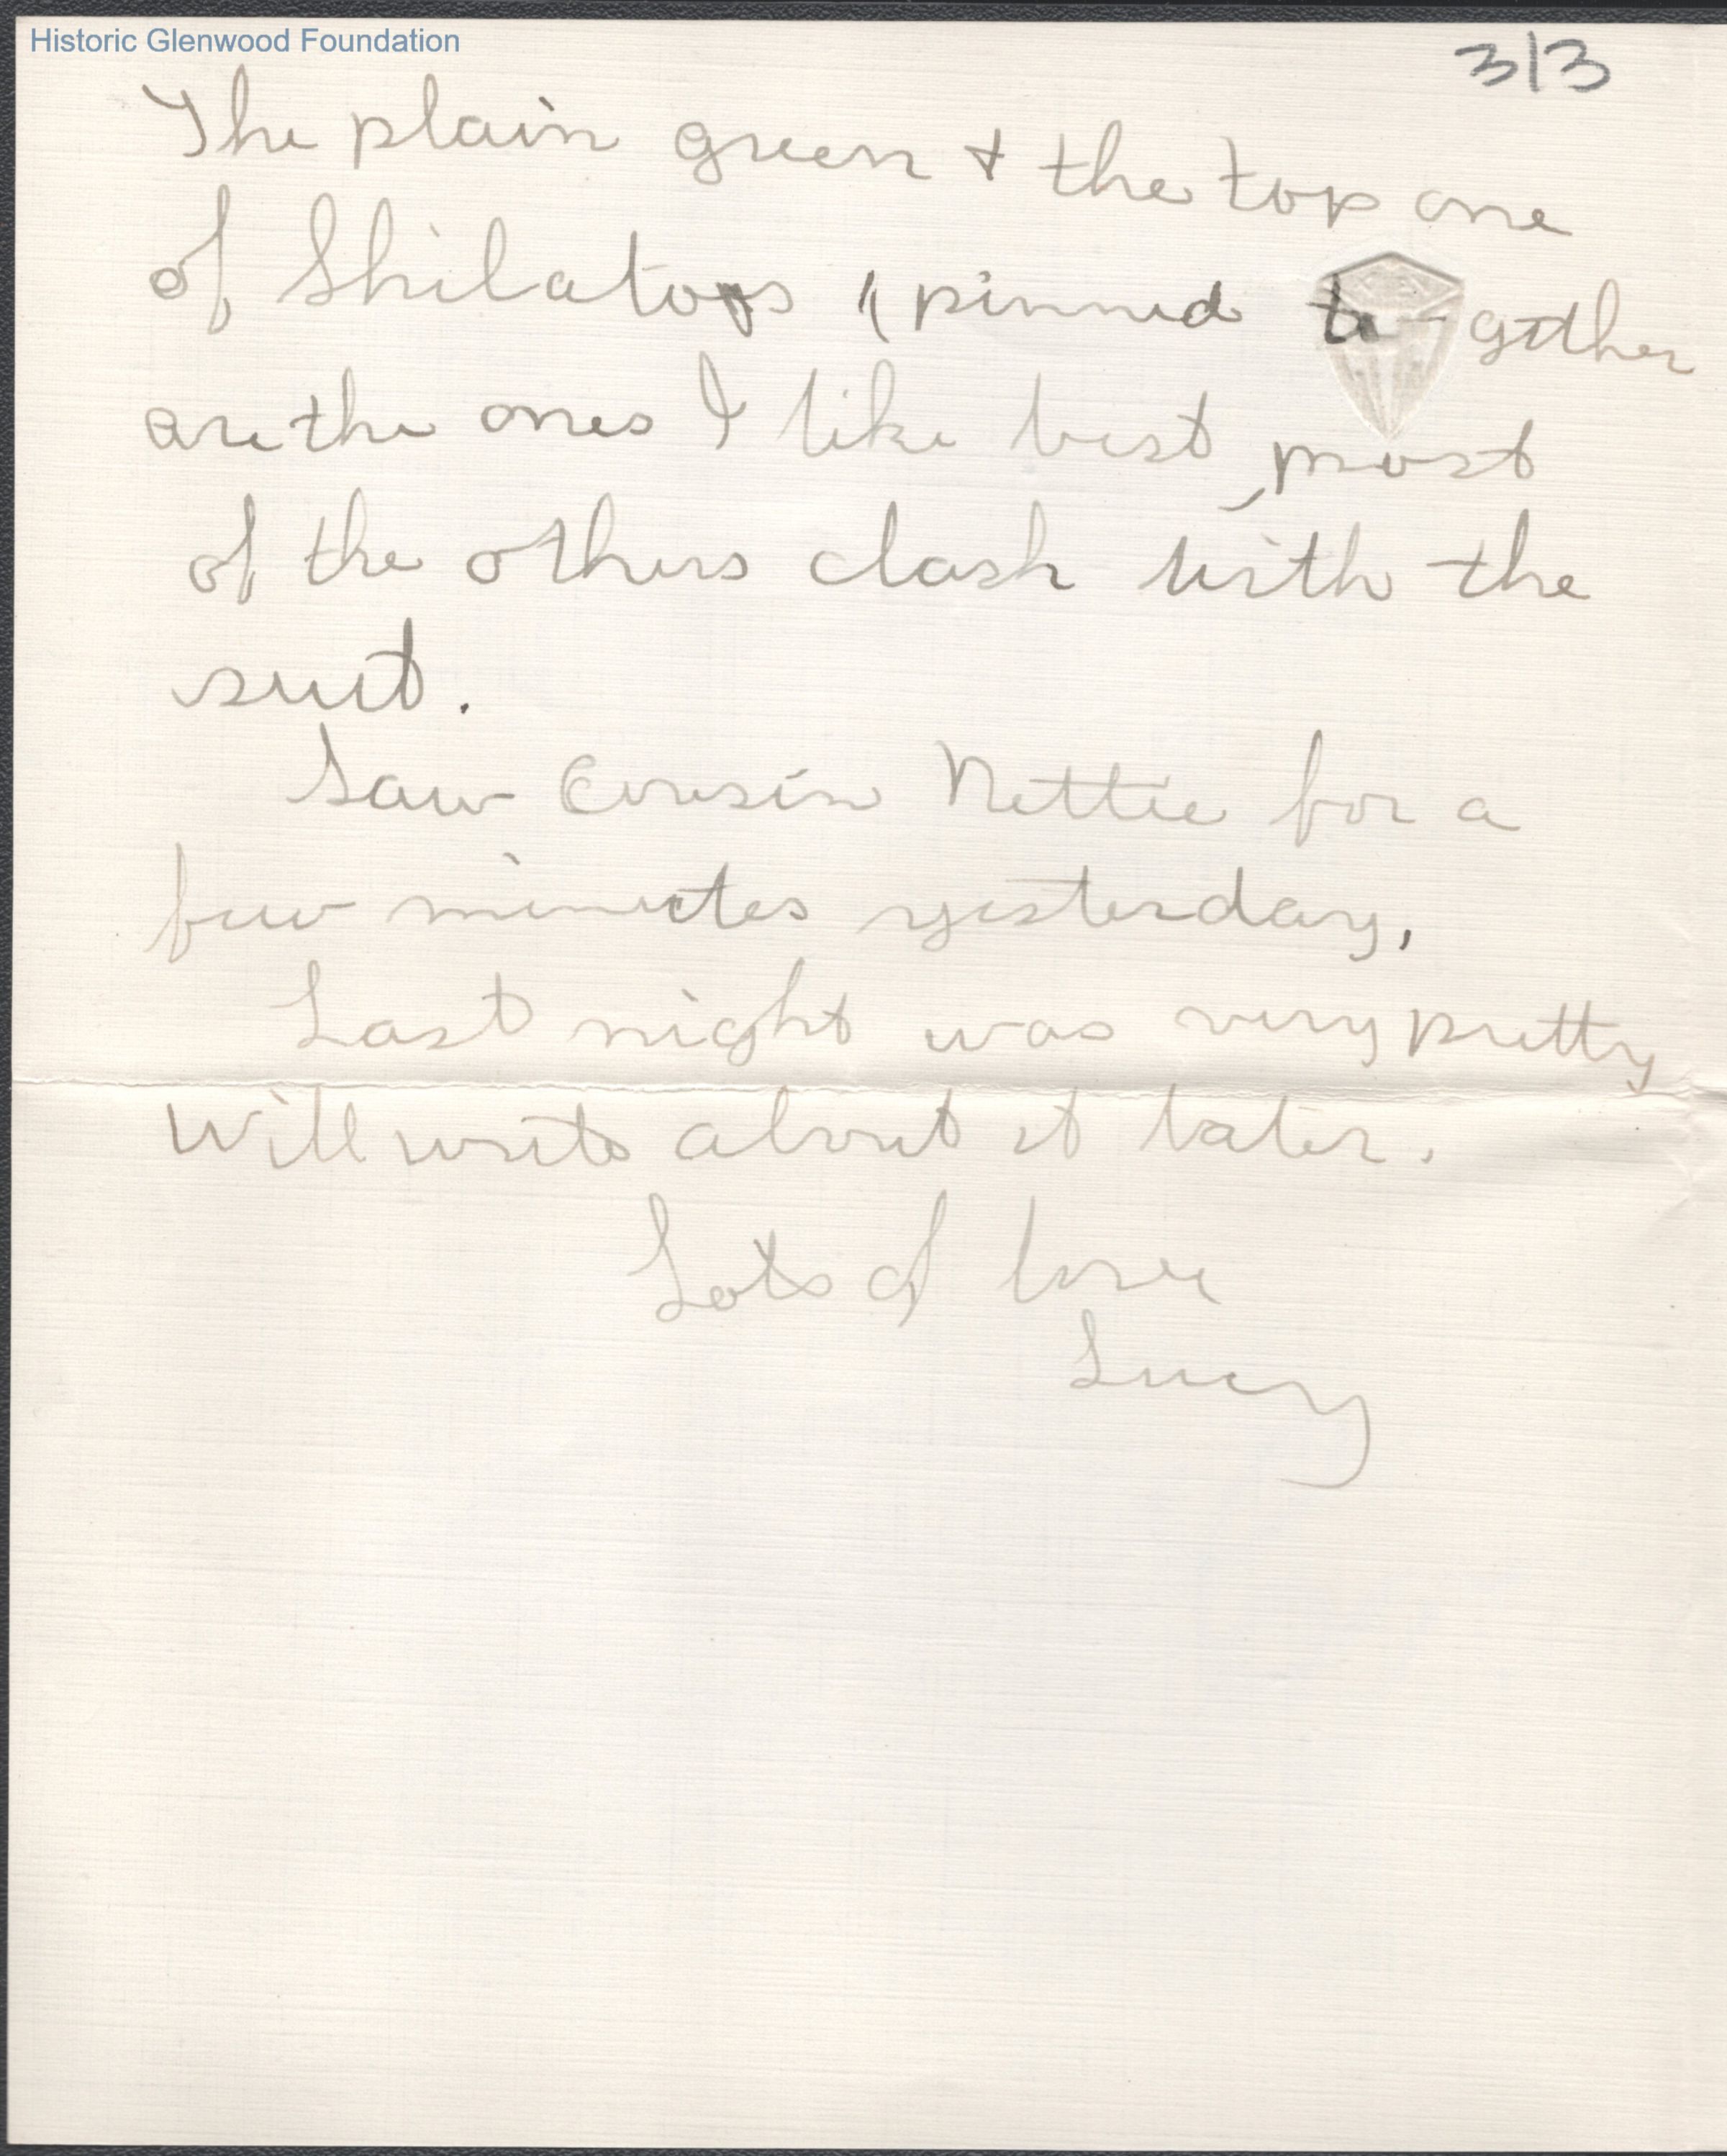 Historic Glenwood Foundation
3/3
The plain green + the top one
of Shilatos (pinned to-gether
are the ones I like best, most
of the others clash with the
suit.
Saw Cousin Nettie for a
few minutes yesterday,
Last night was very pretty
Will write about it later.
Lots of love
Lucy